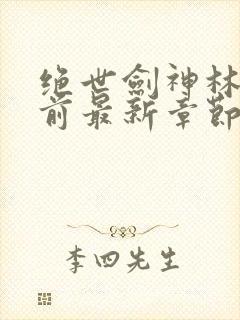 绝世劍神林
前最新章節
李四先生